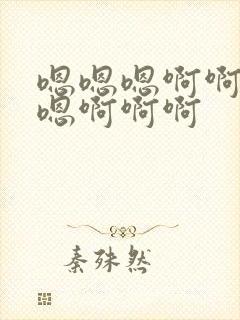 嗯嗯嗯啊啊
嗯啊啊啊
秦殊然